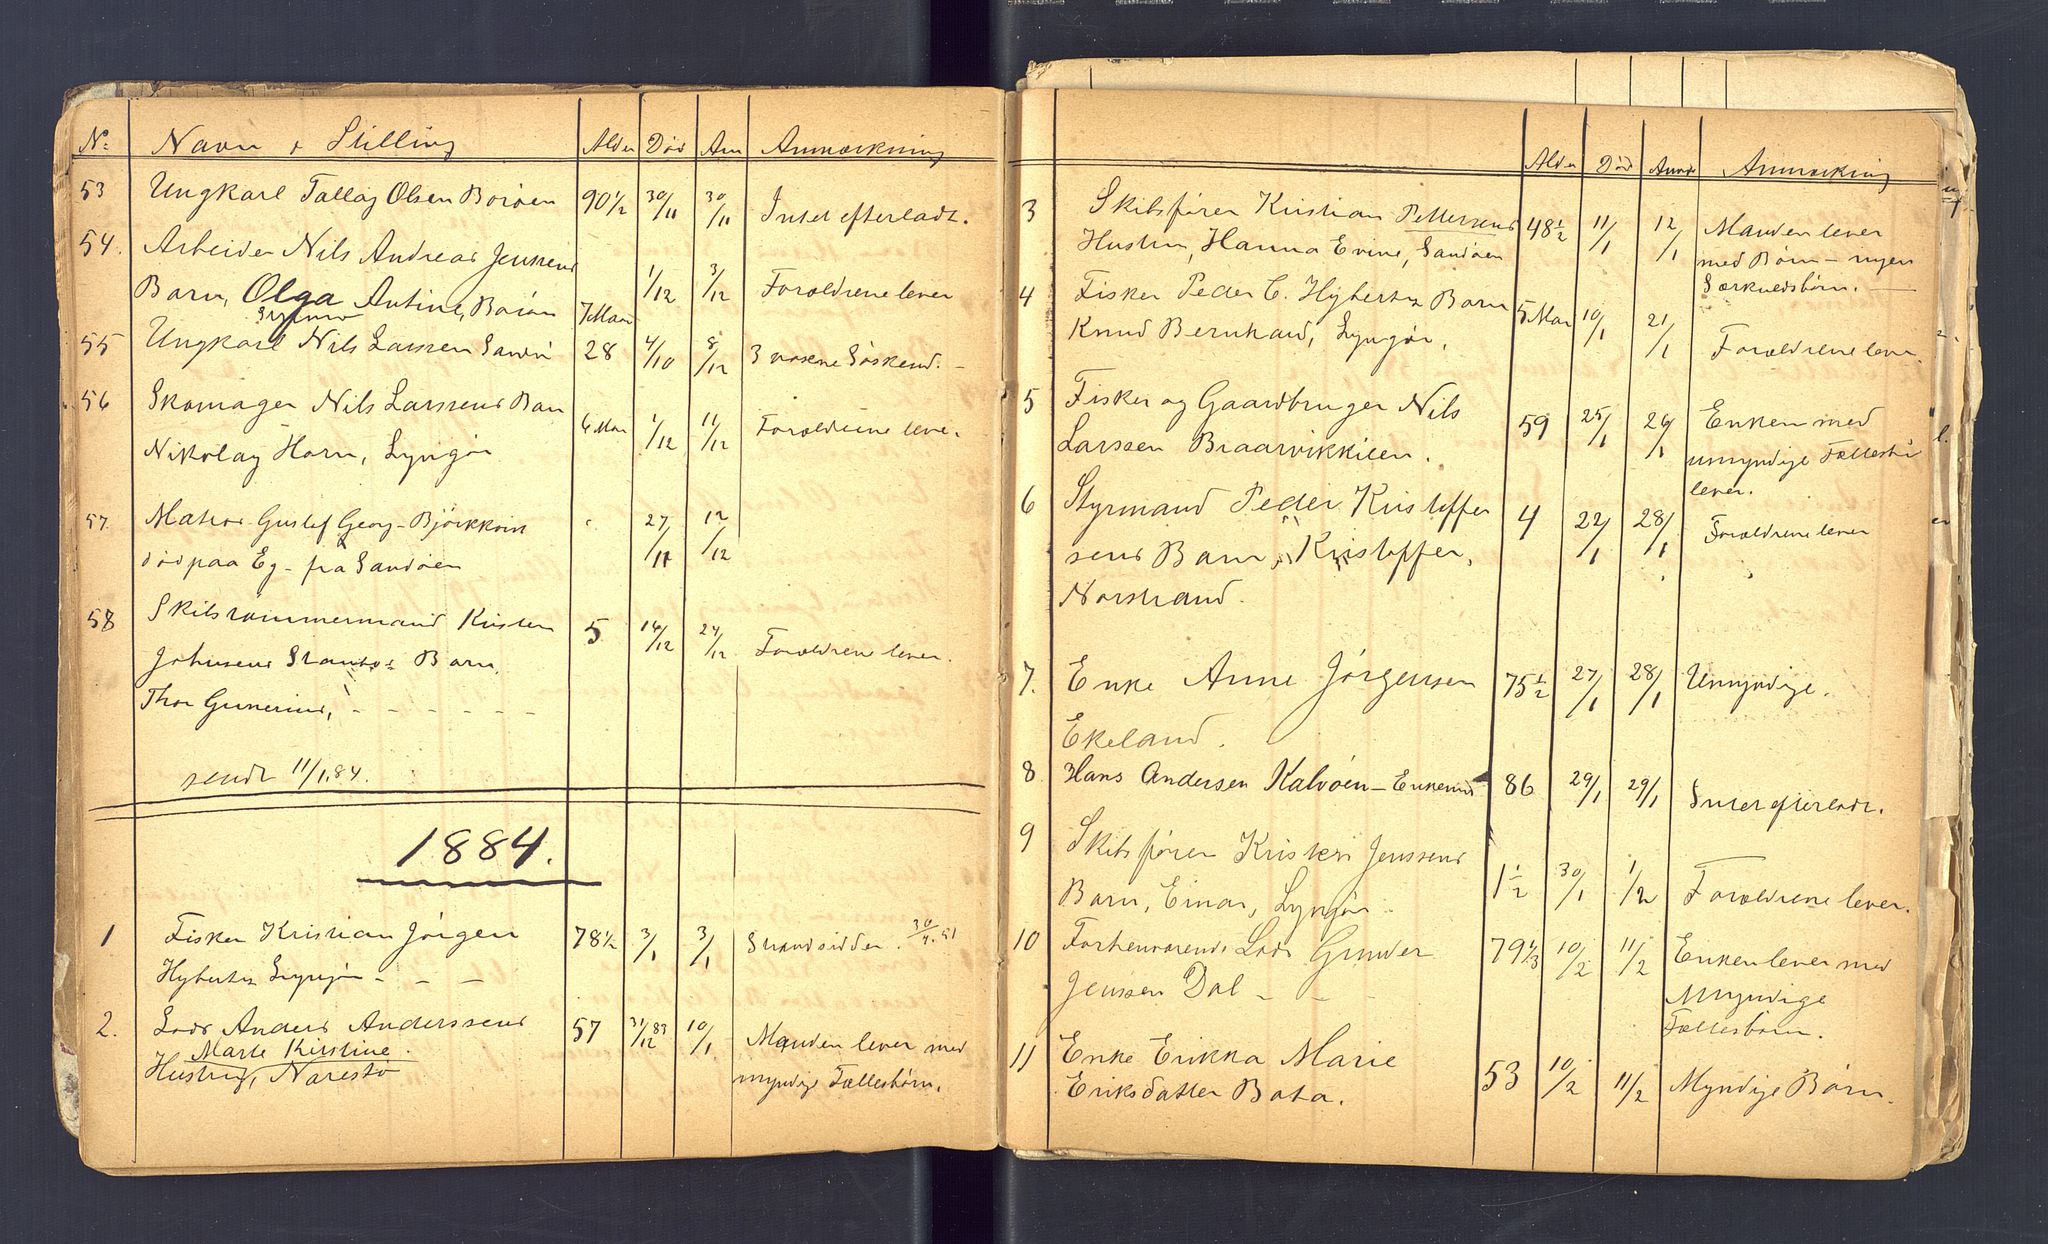 No: Navn & Stilling Alder Død Anm Anmærkning
53 Ungkarl Tallag Olsen Borøen 90 1/2 30/11 30/11 Intet efterladt.
54. Arbeider Nils Andreas Jensens
Barn, Olga Antine, Borøen 7 Maan 1/12 3/12 Forældrene lever
55 Ungkarl Nils Larssen Sandø 28 4/10 8/12 3 voxne Søskend. -
56 Skomager Nils Larssens Barn 6 Maan 1/12 11/12 Forældrene leve.
Nikolay Horn, Lyngør
57. Matros Gustaf Georg Bjørkkvist 27/11 12/12
død paa Eg - fra Sandøen
58 Skibstømmermand Kristen 5 16/12 24/12 Forældrene lever.
Johnsens Barn,
Thor Gunerius, - - - - - -
sendt 11/1.84.
1884.
1 Fisker Kristian Jørgen 78 1/2 3/1 3/1 Strandsidder. 30/4.51
Hybertz Lyngør - - -
2. Lods Anders Anderssens 57 31/12 83 10/1 Manden lever med
Marte Kirstine.
Hustru, Narestø myndige Fællesbørn.
Alder Død Anm Anmærkning
3 Skibsfører Kristian Pettersens 48 1/2 11/1 12/1 Manden lever
Hustru, Hanna Evine, Sandøen med Børn - ingen
Særkuldsbørn. -
4 Fisker Peder C. Hybertz Barn 5 Maa 10/1 21/1
Knud Bernhard, Lyngør, Forældrene lever.
5 Fisker og Gaardbruger Nils 59 25/1 26/1 Enken med
Larssen Braarvikkilen. umyndige Fællesbø
lever.
6 Styrmand Peder Kristoffer 4 22/1 28/1 Forældrene lever
sens Barn, Kristoffer,
Norstrand.
7. Enke Anne Jørgensen 75 1/2 27/1 28/1 Umyndige.
Ekeland.
8. Hans Andersen Kalvøen - Enkemd 86 29/1 29/1 Intet efterladt.
9 Skibsfører Kristen Jenssens
Barn, Einar, Lyngør. 1 1/2 30/1 1/2 Forældrene lever.
10 Forhenværende Lods Gunder 79 1/3 10/2 11/2 Enken lever med
Jenssen Dal - - - Myndige
Fællesbørn.
11 Enke Erikka Marie 53 10/2 11/2 Myndige Børn.
Eriksdatter Bota.